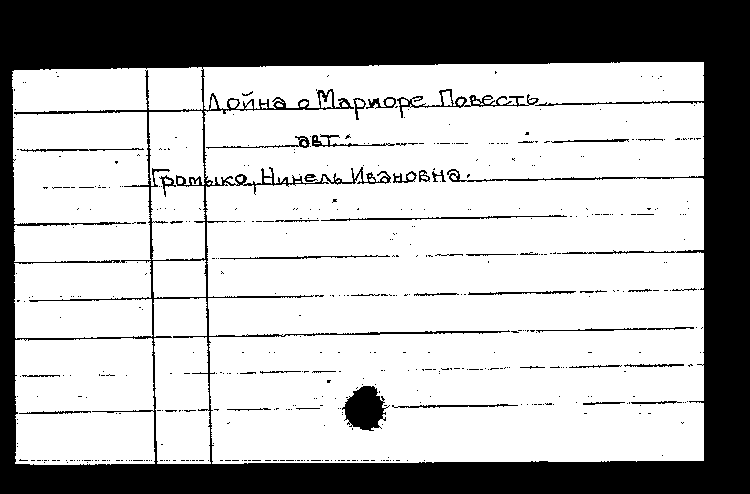 Дойна о Мариоре Повесть
авт.:
Громыко, Нинель Ивановна.